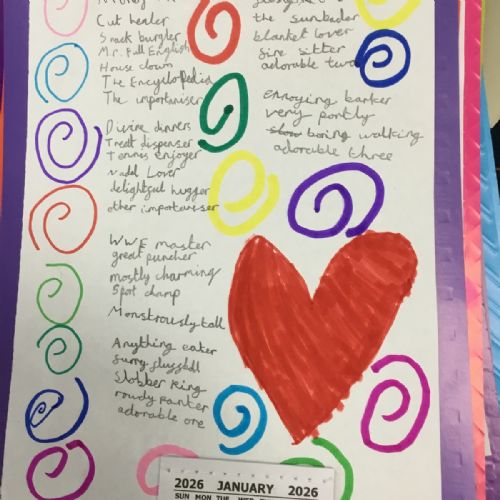 Cut healer
Snack burgler
Mr. Full English
House clown
The Encyclopedia
The importaniser
Divine dinners
Treat dispenser
Tennis enjoyer
Lover
delightful hugger
other importaniser
WWE master
great puncher
mostly charming
Spot champ
Monstrously tall
Anything eater
furry fluzzball
Slobber King
rowdy panter
adorable one
the sunbader
blanket lover
Sire sitter
adorable two
Ennoying barker
very portly
boring walking
adorable three
2026 JANUARY 2026
SUN MON TUE WED